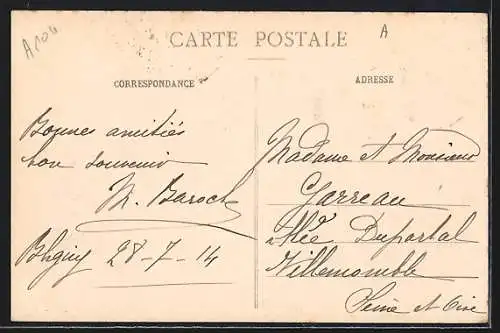 A104
A
CARTE POSTALE
CORRESPONDANCE
Bonnes amitiés
bon souvenir
M. Baroch
28-7-14
ADRESSE
Madame et Monsieur
Garreau
Allée Duportal
Villemomble
Seine et Oise